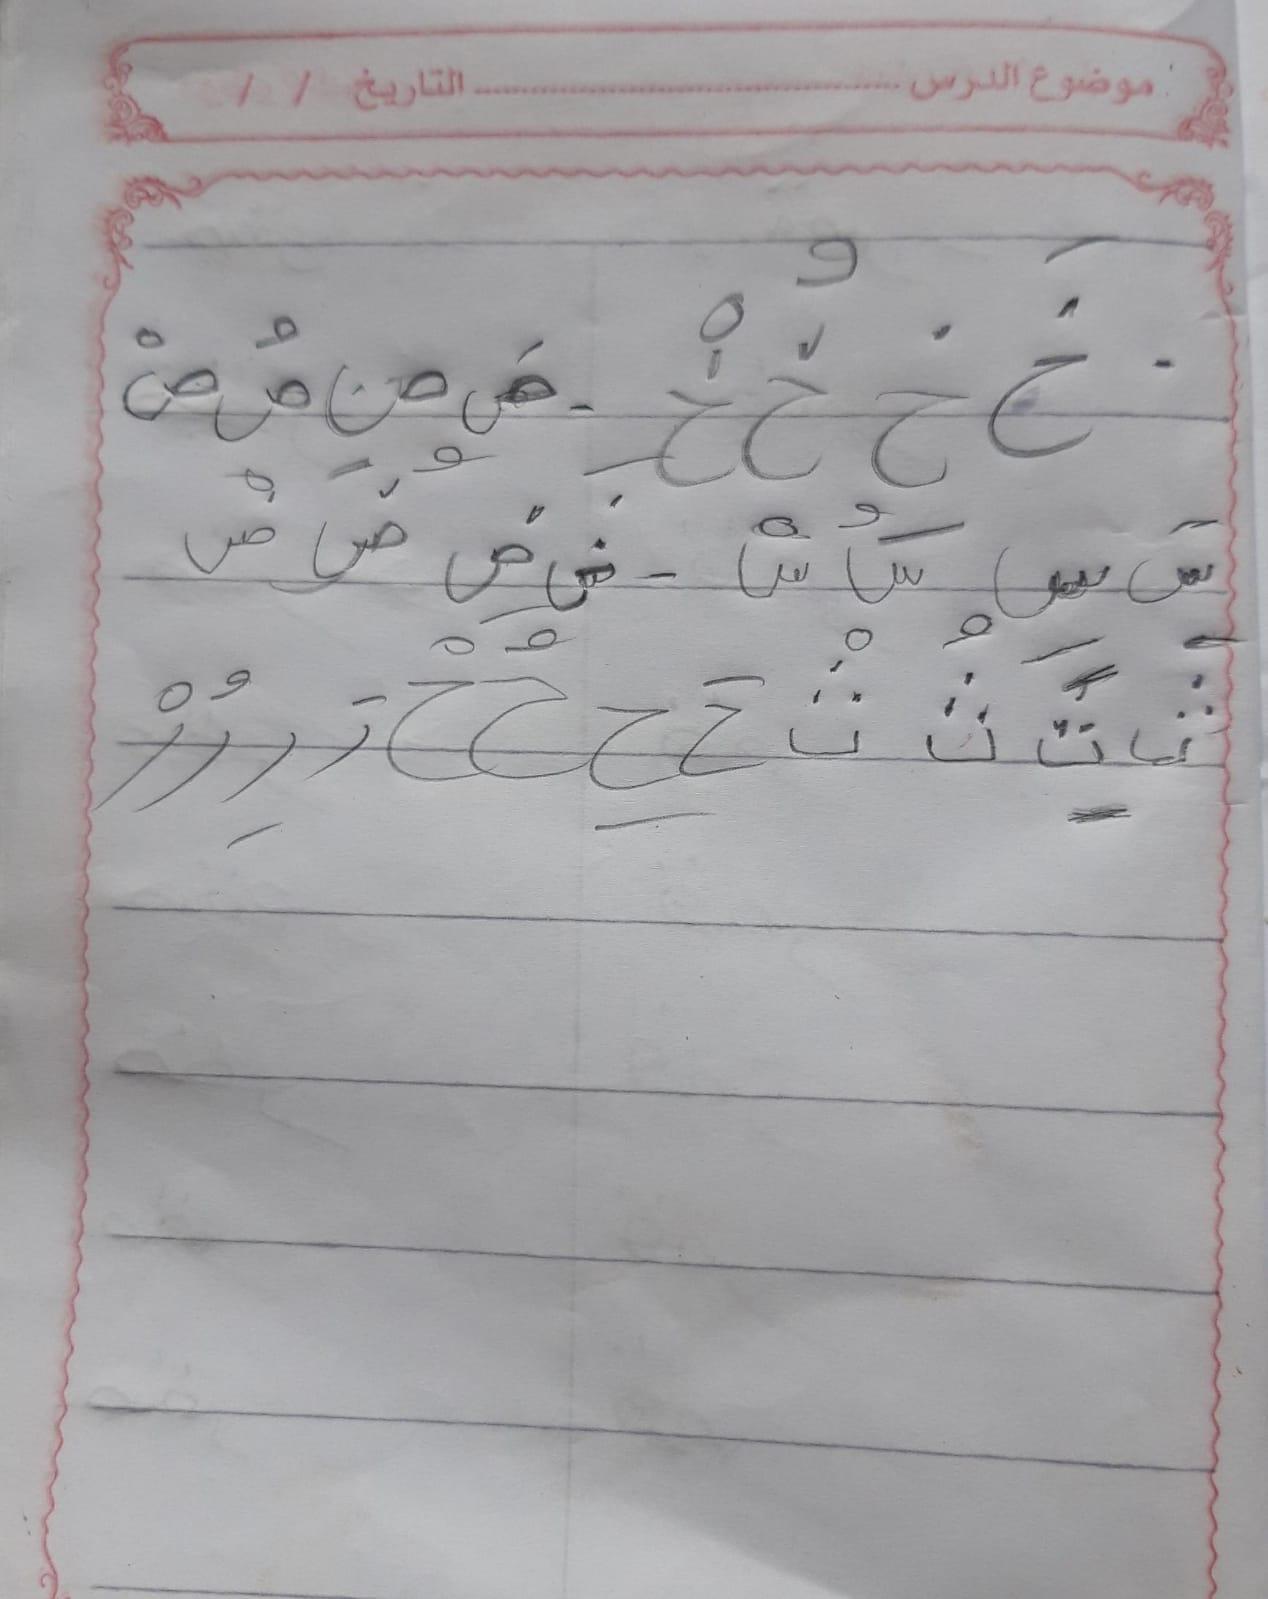 موضوع الدرس ........................ التاريخ / /
خَ خِ خُ خْ - صَ صِ صُ صْ
سَ سِ سُ سْ - ضَ ضِ ضُ ضْ
ثَ ثِ ثُ ثْ حَ حِ حُ حْ رَ رِ رُ رْ